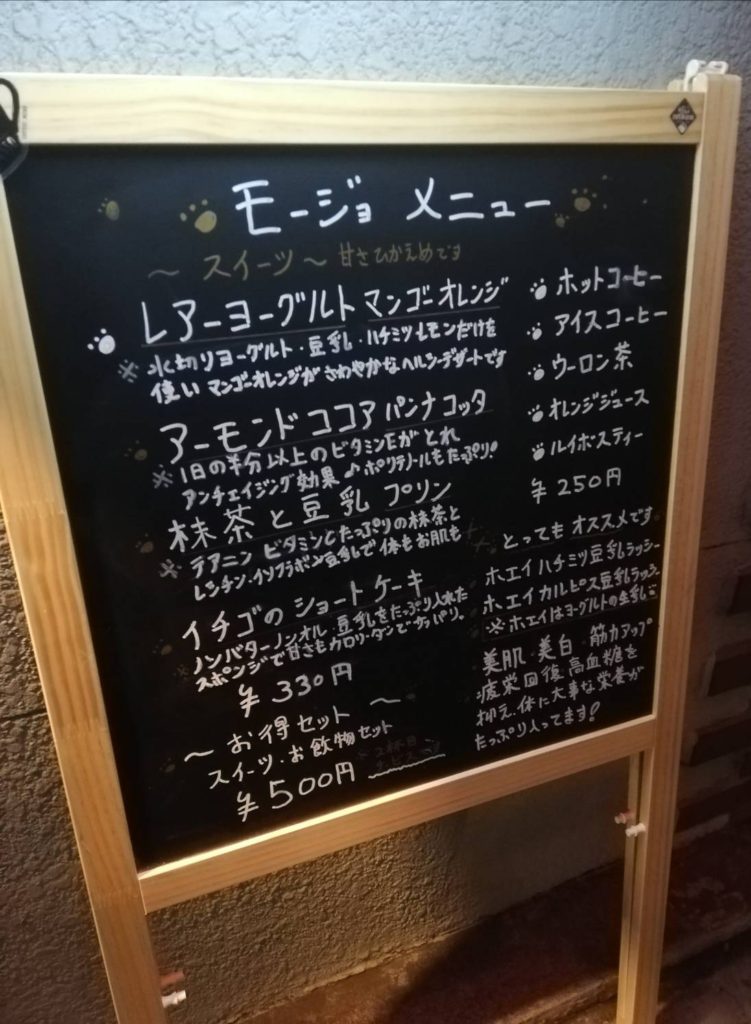 モージョ メニュー
～ スイーツ ～ 甘さひかえめです
レアーヨーグルトマンゴーオレンジ
※ 水切りヨーグルト・豆乳・ハチミツ・レモンだけを
使い マンゴーオレンジが さわやかな ヘルシーデザートです
アーモンドココア パンナコッタ
※ 1日の半分以上のビタミンEがとれ
アンチエイジング効果♪ ポリテノールもたっぷり!
抹茶と豆乳 プリン
※ テアニン ビタミンCたっぷりの抹茶と
レシチン・イソフラボン豆乳で 体もお肌も
イチゴのショートケーキ
ノンバターノンオイル 豆乳をたっぷり入れた
スポンジで甘さもカロリーダウンでサッパリ。
¥ 330円
～ お得セット ～
スイーツ・お飲物セット
¥ 500円
ホットコーヒー
アイスコーヒー
ウーロン茶
オレンジジュース
ルイボスティー
¥ 250円
とっても オススメです
ホエイハチミツ豆乳ラッシー
ホエイカルピス豆乳ラッシー
※ ホエイはヨーグルトの生乳
美肌 美白 筋力アップ
疲労回復 高血糖を
抑え、体に大事な栄養が
たっぷり入ってます!